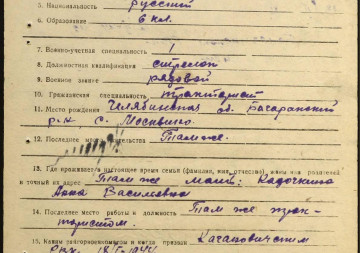 5. Национальность русский
6. Образование 6 кл.
7. Военно-учетная специальность 1
8. Должностная квалификация стрелок
9. Военное звание рядовой
10. Гражданская специальность
11. Место рождения Челябинская об.
р-н с. Москвино
12. Последнее место жительства Там же.
13. Где проживает в настоящее время семья (фамилия, имя, отчество) жены или родителей
и точный их адрес Там же мать: Кадочкина
Анна Васильевна
14. Последнее место работы и должность Там же
15. Каким райгорвоенкоматом и когда призван